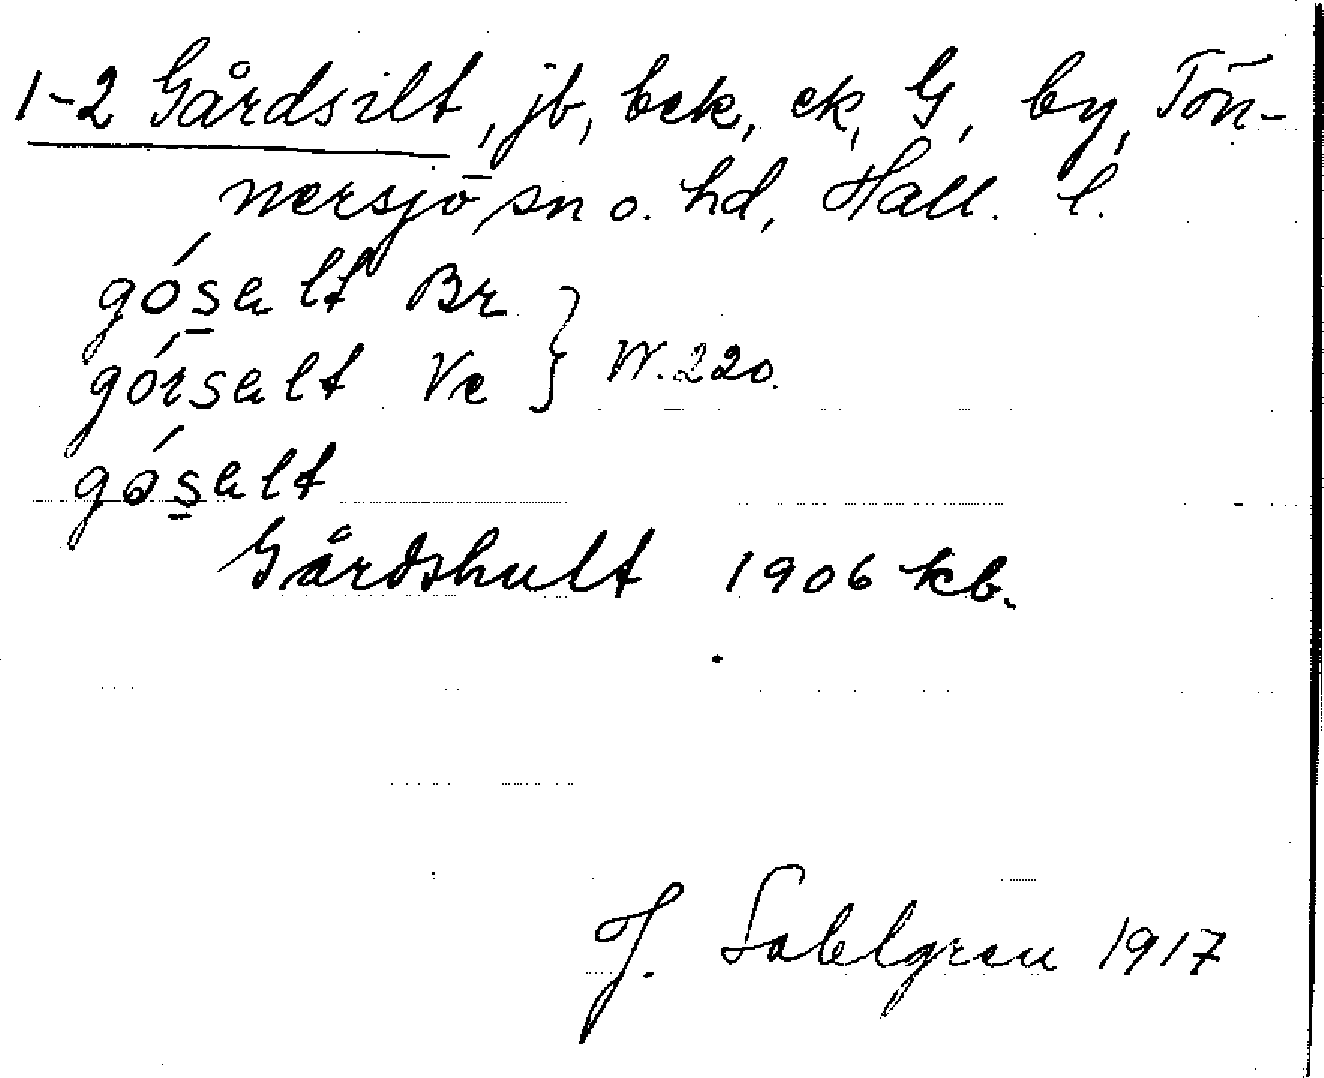 1-2 Gårdsilt, jb, bek, ek, G, by, Tön-
nersjö sn o. hd, Hall. l.
gósalt Br
górsalt Ve } W. 220.
gósalt
Gårdshult 1906 kb.
J. Sahlgren 1917